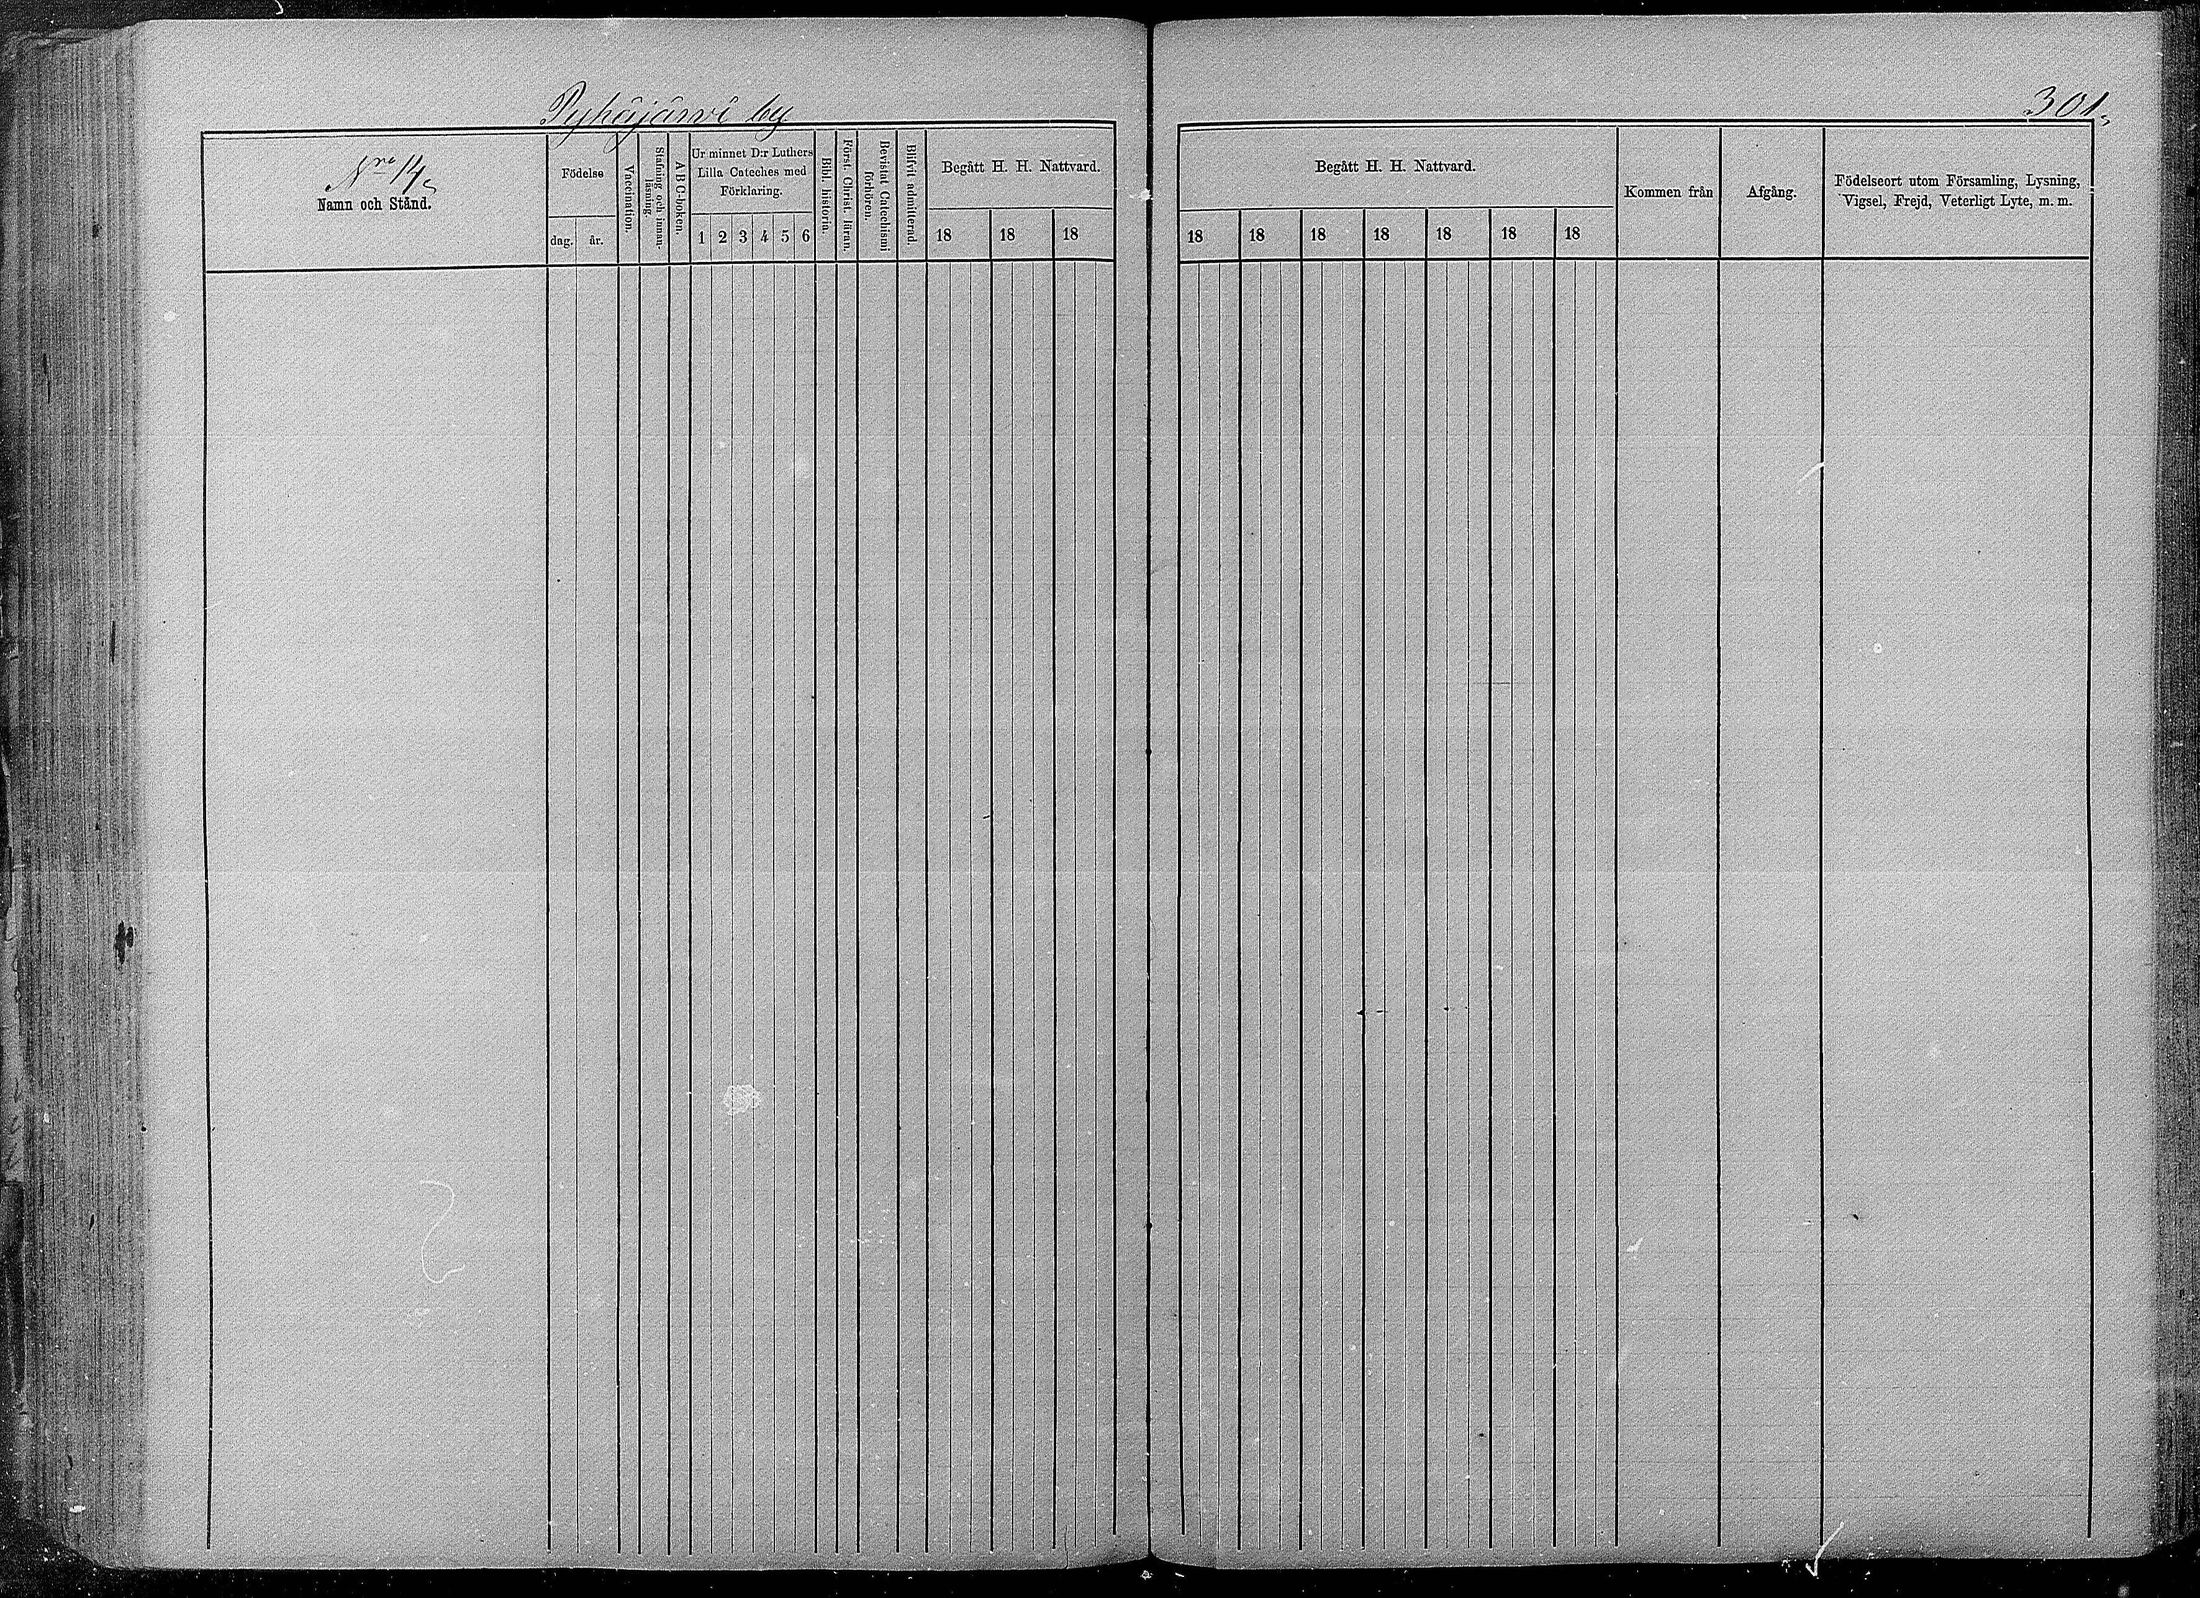 Pyhäjärvi by
301.
Nro 14.
Namn och Stånd.
Födelse
dag.
år.
Vaccination.
Stafning och innan-
läsning.
A B C-boken.
Ur minnet D:r Luthers
Lilla Cateches med
Förklaring.
1 2 3 4 5 6
Bibl. historia.
Först. Christ. läran.
Bevistat Catechismi
förhören.
Blifvit admitterad.
Begått H. H. Nattvard.
18 18 18
Begått H. H. Nattvard.
18 18 18 18 18 18 18
Kommen från
Afgång.
Födelseort utom Församling, Lysning,
Vigsel, Frejd, Veterligt Lyte, m. m.